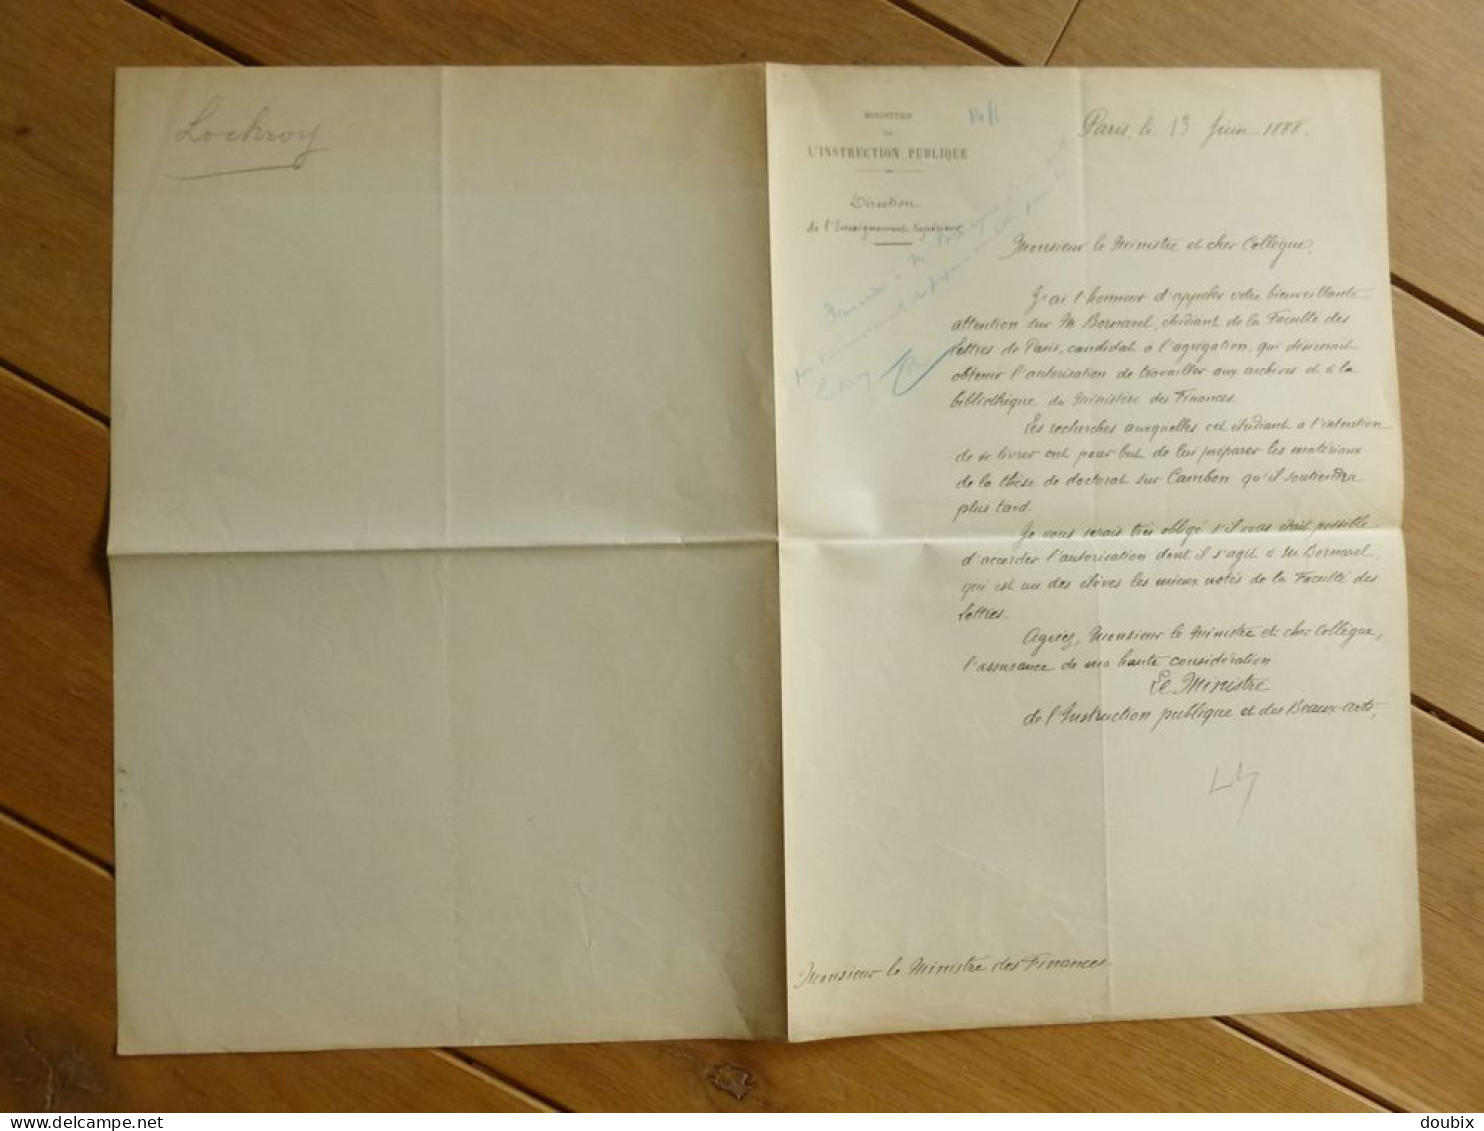 Lockroy
MINISTÈRE
DE
L'INSTRUCTION PUBLIQUE
Direction
de l'Enseignement Supérieur
Paris, le 13 Juin 1888.
Monsieur le Ministre et cher Collègue,
J'ai l'honneur d'appeler votre bienveillante
attention sur M. Bornarel, étudiant de la Faculté des
lettres de Paris, candidat à l'agrégation, qui désirerait
obtenir l'autorisation de travailler aux archives et à la
bibliothèque du Ministère des Finances.
Les recherches auxquelles cet étudiant a l'intention
de se livrer ont pour but de lui préparer les matériaux
de la thèse de doctorat sur Cambon qu'il soutiendra
plus tard.
Je vous serais très obligé s'il vous était possible
d'accorder l'autorisation dont il s'agit à M. Bornarel,
qui est un des élèves les mieux notés de la Faculté des
lettres.
Agréez, Monsieur le Ministre et cher Collègue,
l'assurance de ma haute considération
Le Ministre
de l'Instruction publique et des Beaux-arts,
Monsieur le Ministre des Finances.
doubix